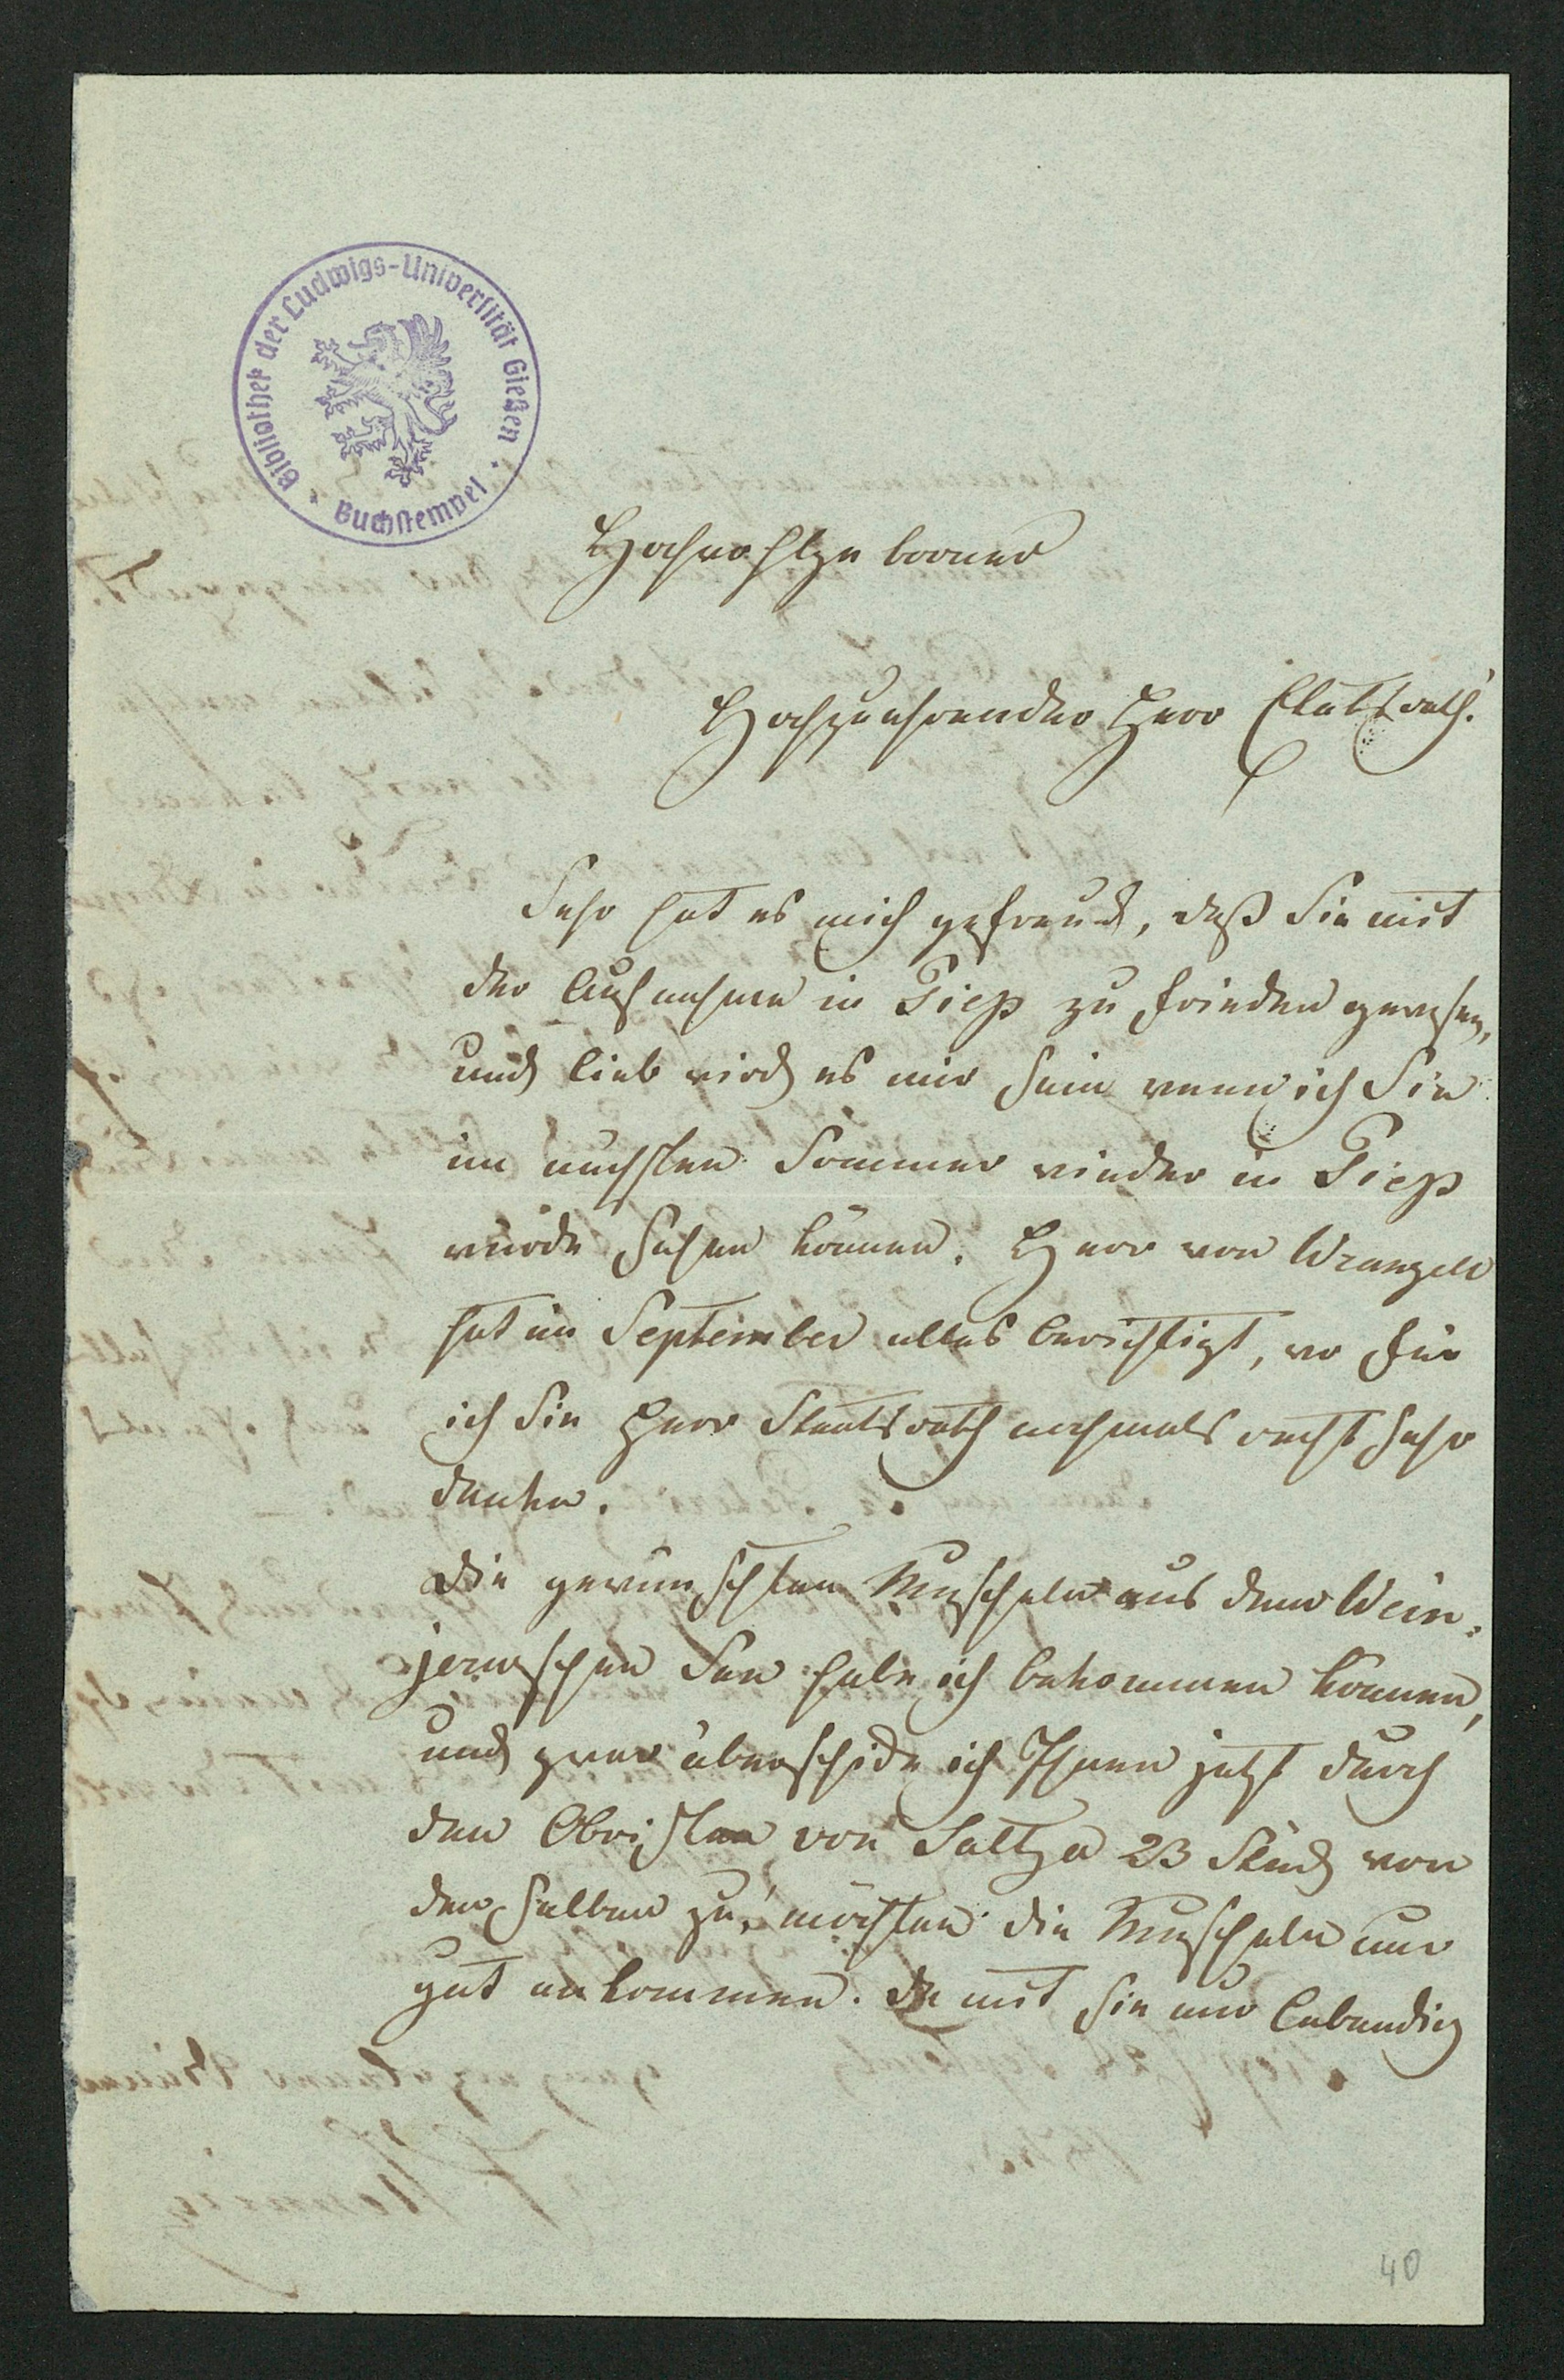 Bibliothek der Ludwigs-Universität Gießen
Buchstempel
Hochwohlgeborner
Hochzuehrender Herr Etatsrath!
Sehr hat es mich gefreud, daß Sie mit
der Aufnahme in Piep zu frieden gewesen,
und lieb wird es mir sein wenn ich Sie
im nächsten Sommer wieder in Piep
würde sehen können. Herr von Wrangell
hat im September alles berichtigt, wo für
ich Sie Herr Staatsrath nochmals recht sehr
danke.
Die gewünschten Muscheln aus dem Wein-
jerwschen See habe ich bekommen können,
und zwar überschicke ich Ihnen jetzt durch
den Obristen von Saltza 23 Stück von
den selben zu, möchten die Muscheln nur
gut ankommen. Da mit sie nur lebendig
40